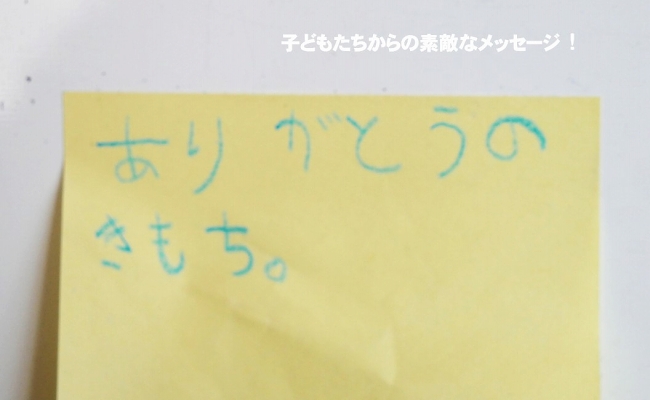 子どもたちからの素敵なメッセージ！
ありがとうの
きもち。